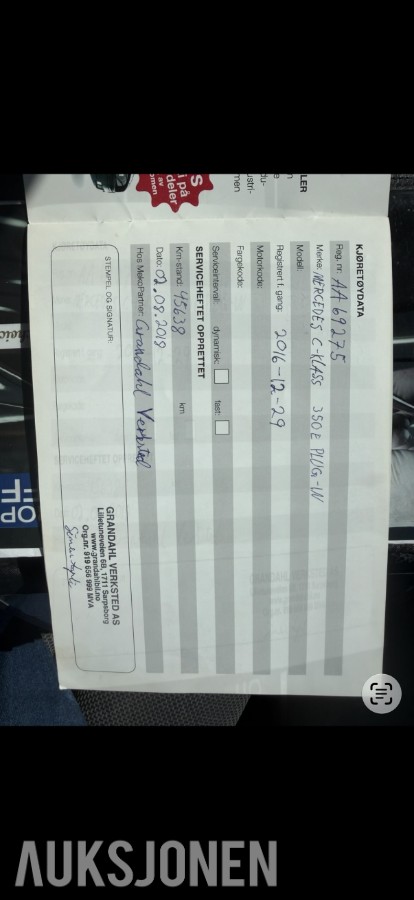 S
i på
deler
av
omen
LER
KJØRETØYDATA
Reg. nr: AA 69275
Merke: MERCEDES C-KLASS 350 E PLUG-IN
Modell:
Registrert f. gang: 2016-12-29
Motorkode:
Fargekode:
Serviceintervall: dynamisk: fast:
SERVICEHEFTET OPPRETTET
Km-stand: 45638 km
Dato: 02.08.2019
Hos MekoPartner: Grandahl Verksted
STEMPEL OG SIGNATUR:
GRANDAHL VERKSTED AS
Lilletuneveien 6B, 1711 Sarpsborg
www.grandahlbil.no
Org.nr. 919 656 999 MVA
OP
AUKSJONEN